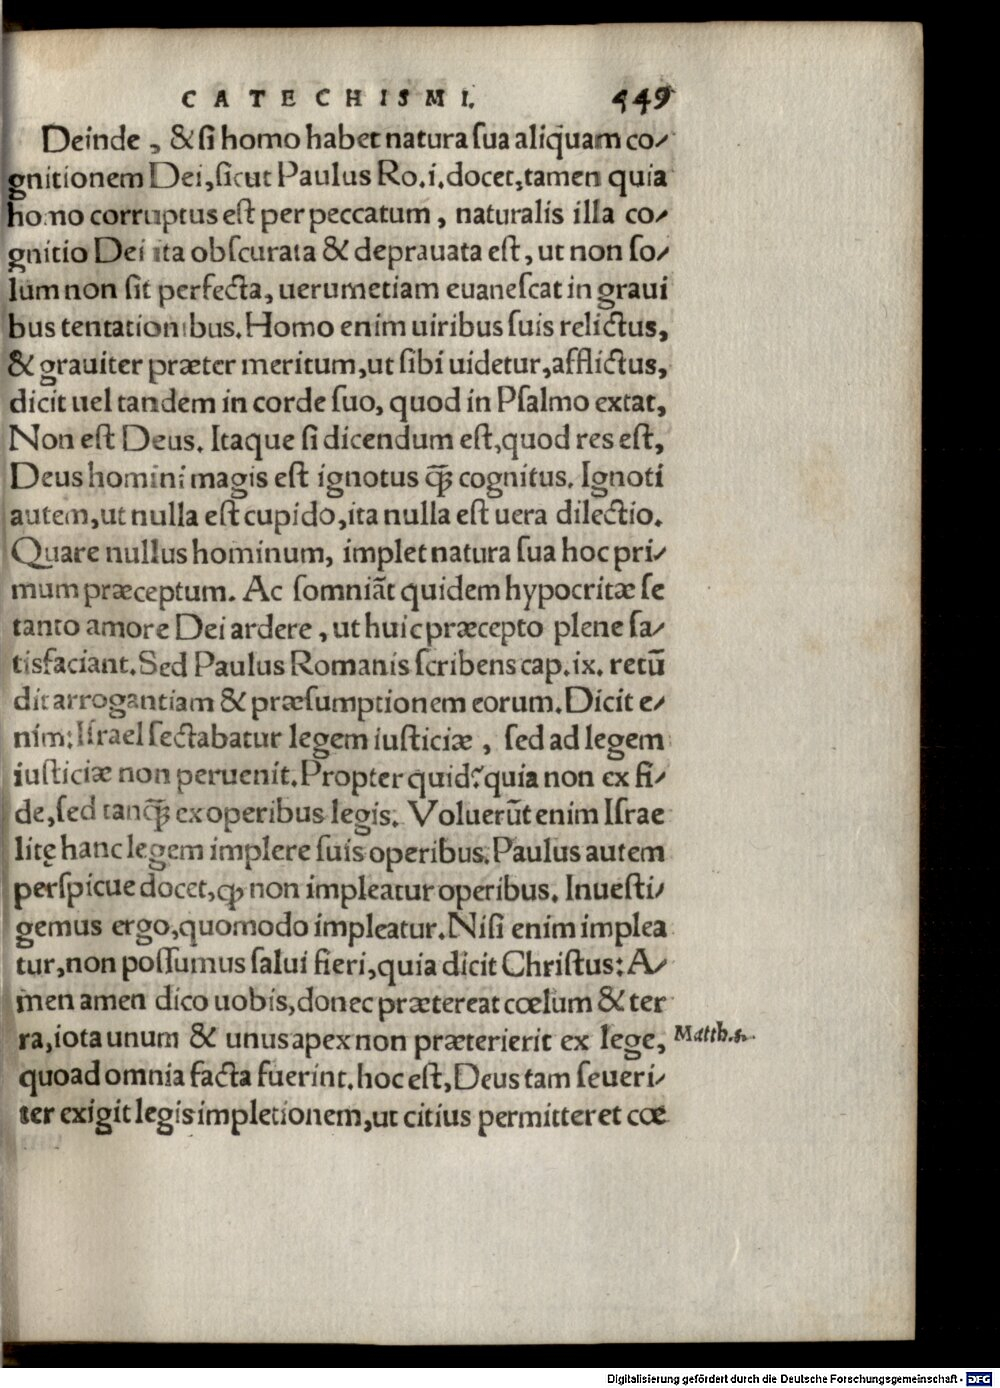 CATECHISMI. 449
Deinde, & ſi homo habet natura ſua aliquam co-
gnitionem Dei, ſicut Paulus Ro. i. docet, tamen quia
homo corruptus eſt per peccatum, naturalis illa co-
gnitio Dei ita obſcurata & deprauata eſt, ut non ſo-
lum non ſit perfecta, uerumetiam euaneſcat in graui
bus tentationibus. Homo enim uiribus ſuis relictus,
& grauiter præter meritum, ut ſibi uidetur, afflictus,
dicit uel tandem in corde ſuo, quod in Pſalmo extat,
Non eſt Deus. Itaque ſi dicendum eſt, quod res eſt,
Deus homini magis eſt ignotus q̃ȝ cognitus. Ignoti
autem, ut nulla eſt cupido, ita nulla eſt uera dilectio.
Quare nullus hominum, implet natura ſua hoc pri-
mum præceptum. Ac ſomniãt quidem hypocritæ ſe
tanto amore Dei ardere, ut huic præcepto plene ſa-
tisfaciant. Sed Paulus Romanis ſcribens cap. ix. retũ
dit arrogantiam & præſumptionem eorum. Dicit e-
nim: Iſrael ſectabatur legem iuſticiæ, ſed ad legem
iuſticiæ non peruenit. Propter quid? quia non ex fi-
de, ſed tanq̃ȝ ex operibus legis. Voluerũt enim Iſrae
litę hanc legem implere ſuis operibus. Paulus autem
perſpicue docet, ꝙ non impleatur operibus. Inueſti-
gemus ergo, quomodo impleatur. Niſi enim implea
tur, non poſſumus ſalui fieri, quia dicit Chriſtus: A-
men amen dico uobis, donec prætereat cœlum & ter
ra, iota unum & unus apex non præterierit ex lege, Matth. 5.
quoad omnia facta fuerint. hoc eſt, Deus tam ſeueri-
ter exigit legis impletionem, ut citius permitteret cœ
Digitalisierung gefördert durch die Deutsche Forschungsgemeinschaft - DFG